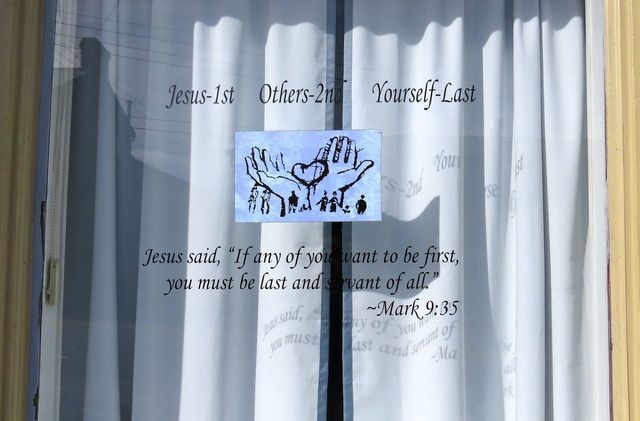 Jesus-1st Others-2nd Yourself-Last
Jesus said, “If any of you want to be first,
you must be last and servant of all.”
~Mark 9:35